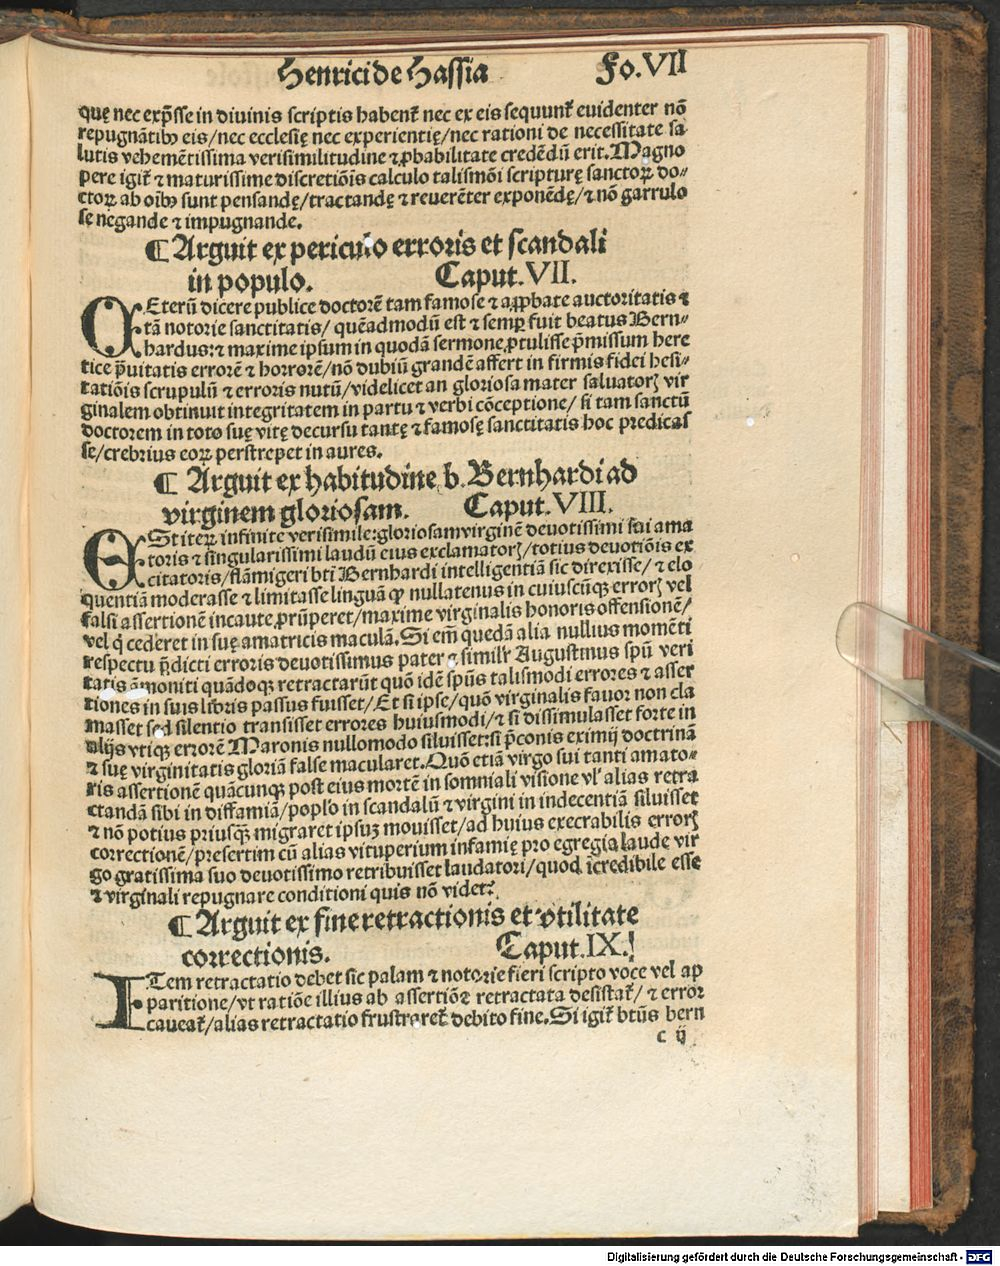 Henrici de Hassia Fo. VII
quę nec exp̄sse in divinis scriptis habent̄ nec ex eis sequunt̄ euidenter nō
repugnātibꝫ eis/nec ecclesię nec experientię/nec rationi de necessitate sa
lutis vehemētissima verisimilitudine ⁊ ꝓbabilitate credēdū erit. Magno
pere igit̄ ⁊ maturissime discretiōis calculo talismōi scripturę sanctoꝝ do⸗
ctoꝝ ab oībꝫ sunt pensandę/tractandę ⁊ reuerēter exponēdę/⁊ nō garrulo
se negande ⁊ impugnande.
¶ Arguit ex periculo erroris et scandali
in populo. Caput. VII.
CEterū dicere publice doctorē tam famose ⁊ aꝓpbate auctoritatis ⁊
tā notorie sanctitatis/ quēadmodū est ⁊ semꝑ fuit beatus Bern⸗
hardus: ⁊ maxime ipsum in quodā sermone ꝓtulisse p̄missum here
tice p̄uitatis errorē ⁊ horrorē/nō dubiū grandē affert in firmis fidei hesi⸗
tatiōis scrupulū ⁊ erroris nutū/videlicet an gloriosa mater saluatorꝭ vir
ginalem obtinuit integritatem in partu ⁊ verbi cōceptione/ si tam sanctū
doctorem in toto suę vitę decursu tantę ⁊ famosę sanctitatis hoc predicas
se/crebrius eoꝝ perstrepet in aures.
¶ Arguit ex habitudine b. Bernhardi ad
virginem gloriosam. Caput. VIII.
ESt iteꝝ infinite verisimile: gloriosam virginē deuotissimi sui ama
toris ⁊ singularissimi laudū eius exclamatorꝭ/totius deuotiōis ex
citatoris/flāmigeri bti Bernhardi intelligentiā sic direxisse/ ⁊ elo
quentiā moderasse ⁊ limitasse linguā ꝙ nullatenus in cuiuscūqꝫ errorꝭ vel
falsi assertionē incaute ꝓrūperet/maxime virginalis honoris offensionē/
vel q̄ cederet in suę amatricis maculā. Si em̄ quedā alia nullius momēti
respectu p̄dicti erroris deuotissimus pater ⁊ simil̄r Augustinus spū veri
tatis āmoniti quādoqꝫ retractarūt quō idē spūs talismodi errores ⁊ asser
tiones in suis libris passus fuisset/Et si ipse/quō virginalis fauor non cla
masset sed silentio transisset errores huiusmodi/⁊ si dissimulasset forte in
alijs vtiqꝫ errorē Maronis nullomodo siluisset: si p̄conis eximij doctrina
⁊ suę virginitatis gloriā false macularet. Quō etiā virgo sui tanti amato⸗
ris assertionē quācunqꝫ post eius mortē in somniali visione vl̓ alias retra
ctandā sibi in diffamiā/popl̓o in scandalū ⁊ virgini in indecentiā siluisset
⁊ nō potius priusqꝫ̄ migraret ipsuꝫ mouisset/ad huius execrabilis errorꝭ
correctionē/presertim cū alias vituperium infamię pro egregia laude vir
go gratissima suo deuotissimo retribuisset laudatori/quod īcredibile esse
⁊ virginali repugnare conditioni quis nō videt?
¶ Arguit ex fine retractionis et vtilitate
correctionis. Caput. IX.
ITem retractatio debet sic palam ⁊ notorie fieri scripto voce vel ap
paritione/vt ratiōe illius ab assertiōe retractata desistat̄/ ⁊ error
caueat̄/alias retractatio frustraret̄ debito fine. Si igit̄ btūs bern
c ij
Digitalisierung gefördert durch die Deutsche Forschungsgemeinschaft - DFG